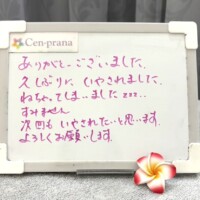 Cen-prana
ありがとーございました。
久しぶりに いやされました。
ねちゃってしまいました zzz...
すみません
次回も いやされたいと思います。
よろしくお願いします。